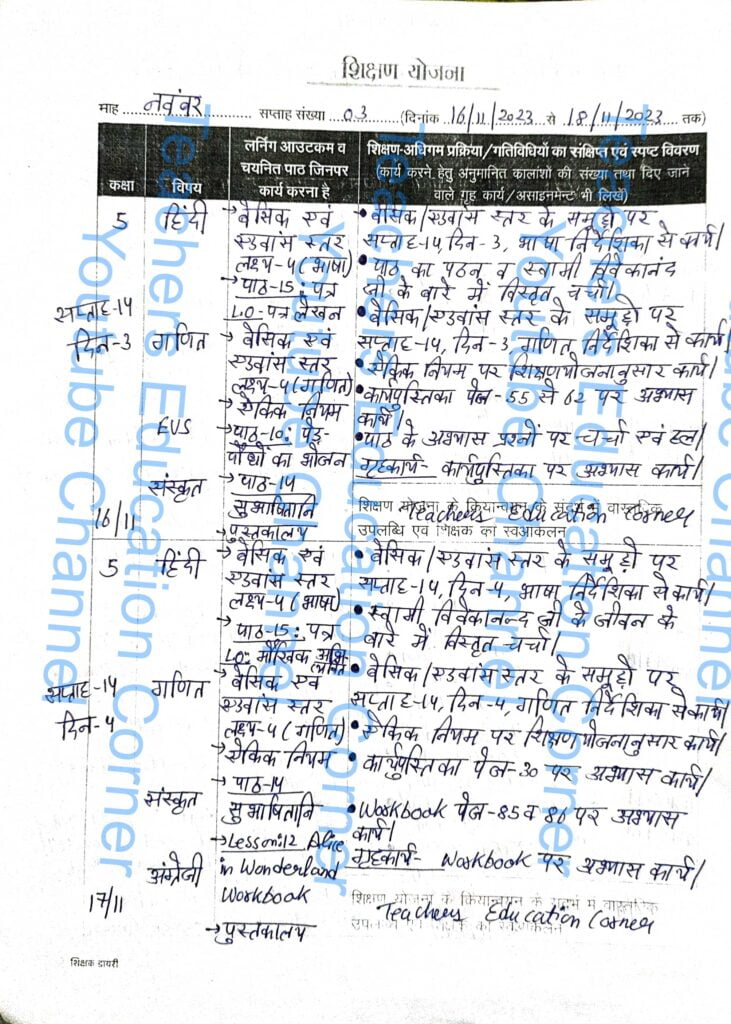 शिक्षण योजना
माह नवंबर सप्ताह संख्या 03 (दिनांक 16/11/2023 से 18/11/2023 तक)
कक्षा
विषय
लर्निंग आउटकम व
चयनित पाठ जिनपर
कार्य करना है
शिक्षण-अधिगम प्रक्रिया/गतिविधियों का संक्षिप्त एवं स्पष्ट विवरण
(कार्य करने हेतु अनुमानित कालांशों की संख्या तथा दिए जाने
वाले गृह कार्य/असाइनमेन्ट भी लिखें)
5 हिंदी
→ बेसिक एवं
एडवांस स्तर
लक्ष्य-4 (भाषा)
→ पाठ-15: पत्र
L.O-पत्र लेखन
• बेसिक/एडवांस स्तर के समूहों पर
सप्ताह-14, दिन-3, भाषा निर्देशिका से कार्य।
• पाठ का पठन व स्वामी विवेकानंद
जी के बारे में विस्तृत चर्चा।
सप्ताह-14
दिन-3
गणित
→ बेसिक एवं
एडवांस स्तर
लक्ष्य-4 (गणित)
→ ऐकिक नियम
• बेसिक/एडवांस स्तर के समूहों पर
सप्ताह-14, दिन-3 गणित निर्देशिका से कार्य।
• ऐकिक नियम पर शिक्षणयोजनानुसार कार्य।
• कार्यपुस्तिका पेज-55 से 62 पर अभ्यास
कार्य।
EVS
→ पाठ-10: पेड़-
पौधों का भोजन
• पाठ के अभ्यास प्रश्नों पर चर्चा एवं हल।
गृहकार्य- कार्यपुस्तिका पर अभ्यास कार्य।
संस्कृत
→ पाठ-14
सुभाषितानि
→ पुस्तकालय
16/11
शिक्षण योजना के क्रियान्वयन के संदर्भ में वास्तविक
उपलब्धि एवं शिक्षक का स्वआकलन
Teachers Education Corner
5 हिंदी
→ बेसिक एवं
एडवांस स्तर
लक्ष्य-4 (भाषा)
→ पाठ-15: पत्र
L.O: मौखिक अभि
• बेसिक/एडवांस स्तर के समूहों पर
सप्ताह-14, दिन-4, भाषा निर्देशिका से कार्य।
• स्वामी विवेकानन्द जी के जीवन के
बारे में विस्तृत चर्चा।
सप्ताह-14
दिन-4
गणित
→ बेसिक एवं
एडवांस स्तर
लक्ष्य-4 (गणित)
→ ऐकिक नियम
• बेसिक/एडवांस स्तर के समूहों पर
सप्ताह-14, दिन-4, गणित निर्देशिका से कार्य।
• ऐकिक नियम पर शिक्षणयोजनानुसार कार्य।
• कार्यपुस्तिका पेज-30 पर अभ्यास कार्य।
संस्कृत
→ पाठ-14
सुभाषितानि
अंग्रेजी
→ Lesson:12 Alice
in Wonderland
Workbook
→ पुस्तकालय
• Workbook पेज-85 व 86 पर अभ्यास
कार्य।
गृहकार्य- Workbook पर अभ्यास कार्य।
17/11
शिक्षण योजना के क्रियान्वयन के संदर्भ में वास्तविक
उपलब्धि एवं शिक्षक का स्वआकलन
Teachers Education Corner
शिक्षक डायरी
Teachers Education Corner
Youtube Channel
Teachers Education Corner
Youtube Channel
Teachers Education Corner
Youtube Channel